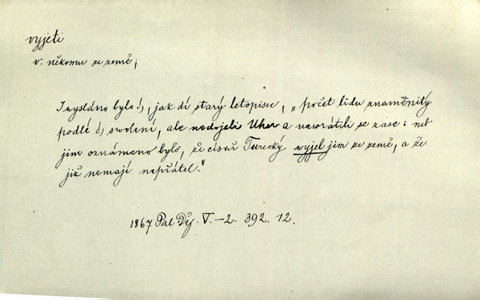 vyjeti
v. někomu ze země;
I vysláno bylo &, jak dí starý letopisec, „počet lidu znamenitý
podlé &, svolení, ale nedojeli Uher a navrátili se zase: neb
jim oznámeno bylo, že císař Turecký vyjel jim ze země, a že
již nemají nepřátel."
1867 Pal Děj. V.-2. 392. 12.